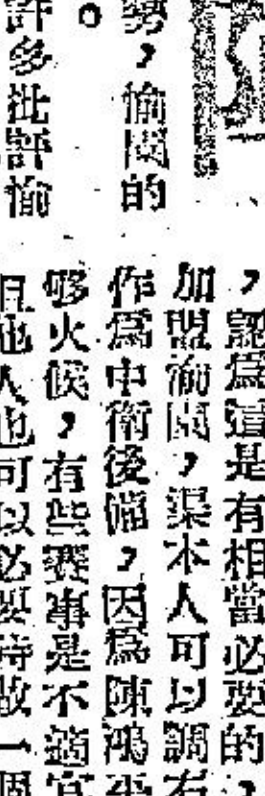 勢，愉園的
。
許多批評愉
，認爲這是有相當必要的，
加盟愉園，渠本人可以調右
作爲中衛後備，因爲陳鴻
够火候，有些賽事是不適宜
且他人也可以必要時做一個